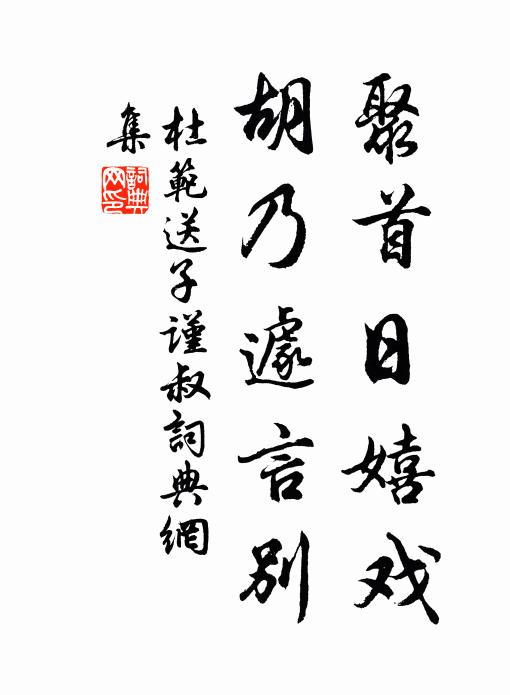 聚首日嬉戏
胡乃遽言别
杜範送子謹叔詞典網
集
詞典网印